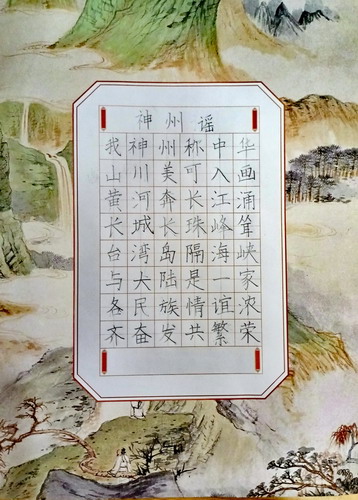 神州谣
我神州称中华
山川美可入画
黄河奔长江涌
长城长珠峰耸
台湾岛隔海峡
与大陆是一家
各民族情谊浓
齐奋发共繁荣